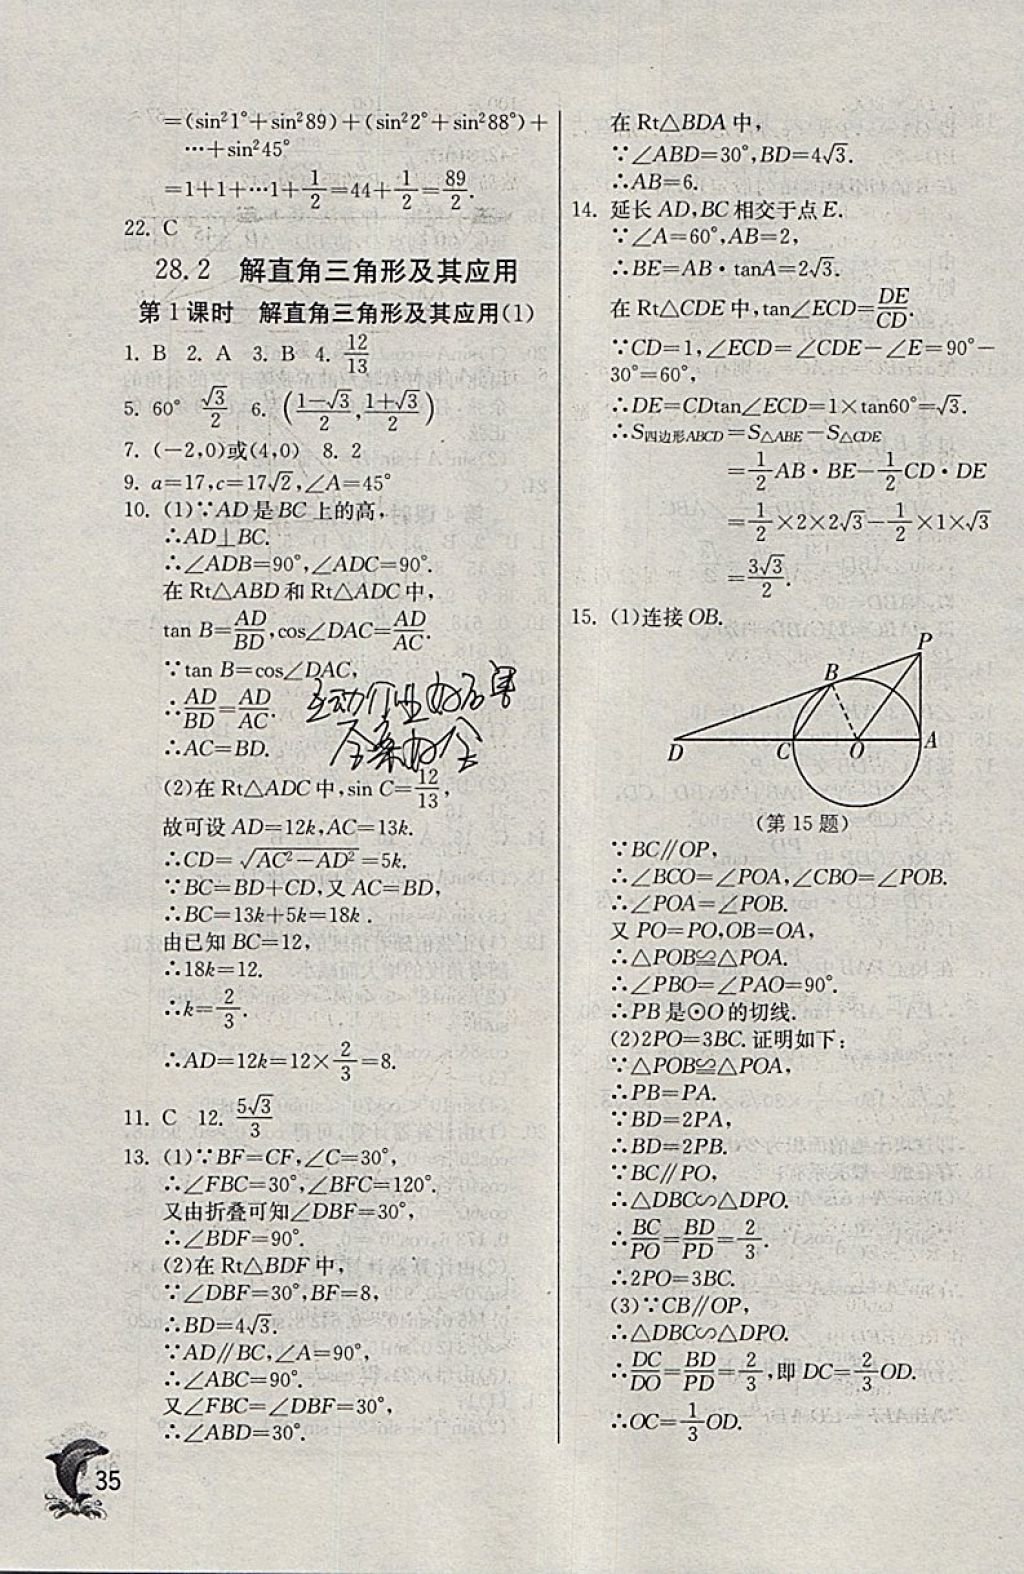 =(sin²1°+sin²89)+(sin²2°+sin²88°)+
…+sin²45°
=1+1+…1+1/2=44+1/2=89/2.
22. C
28.2 解直角三角形及其应用
第1课时 解直角三角形及其应用(1)
1. B 2. A 3. B 4. 12/13
5. 60° √3/2 6. ((1-√3)/2, (1+√3)/2)
7. (-2,0)或(4,0) 8. 2
9. a=17,c=17√2,∠A=45°
10. (1)∵AD是BC上的高,
∴AD⊥BC.
∴∠ADB=90°,∠ADC=90°.
在Rt△ABD和Rt△ADC中,
tan B=AD/BD,cos∠DAC=AD/AC.
∵tan B=cos∠DAC,
∴AD/BD=AD/AC.
∴AC=BD.
(2)在Rt△ADC中,sin C=12/13,
故可设AD=12k,AC=13k.
∴CD=√(AC²-AD²)=5k.
∵BC=BD+CD,又AC=BD,
∴BC=13k+5k=18k.
由已知BC=12,
∴18k=12.
∴k=2/3.
∴AD=12k=12×2/3=8.
11. C 12. 5√3/3
13. (1)∵BF=CF,∠C=30°,
∴∠FBC=30°,∠BFC=120°.
又由折叠可知∠DBF=30°,
∴∠BDF=90°.
(2)在Rt△BDF中,
∵∠DBF=30°,BF=8,
∴BD=4√3.
∵AD∥BC,∠A=90°,
∴∠ABC=90°.
又∠FBC=∠DBF=30°,
∴∠ABD=30°.
35
在Rt△BDA中,
∵∠ABD=30°,BD=4√3.
∴AB=6.
14. 延长AD,BC相交于点E.
∵∠A=60°,AB=2,
∴BE=AB·tanA=2√3.
在Rt△CDE中,tan∠ECD=DE/CD.
∵CD=1,∠ECD=∠CDE-∠E=90°-
30°=60°,
∴DE=CDtan∠ECD=1×tan60°=√3.
∴S四边形ABCD=S△ABE-S△CDE
=1/2AB·BE-1/2CD·DE
=1/2×2×2√3-1/2×1×√3
=3√3/2.
15. (1)连接OB.
P
B
D C O A
(第15题)
∵BC∥OP,
∴∠BCO=∠POA,∠CBO=∠POB.
∴∠POA=∠POB.
又PO=PO,OB=OA,
∴△POB≌△POA.
∴∠PBO=∠PAO=90°.
∴PB是⊙O的切线.
(2)2PO=3BC.证明如下:
∵△POB≌△POA,
∴PB=PA.
∵BD=2PA,
∴BD=2PB.
∵BC∥PO,
∴△DBC∽△DPO.
∴BC/PO=BD/PD=2/3.
∴2PO=3BC.
(3)∵CB∥OP,
∴△DBC∽△DPO.
∴DC/DO=BD/PD=2/3,即DC=2/3OD.
∴OC=1/3OD.